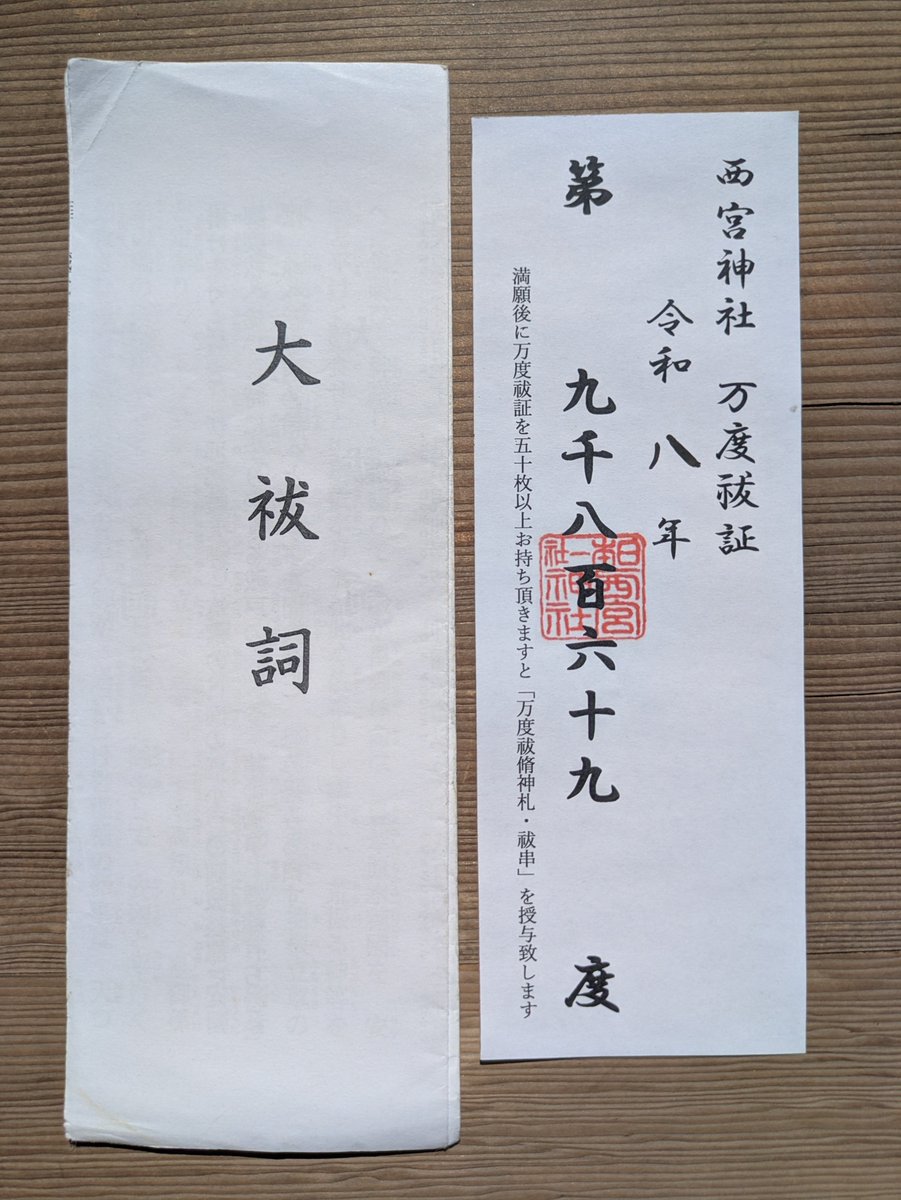 西宮神社 万度祓証
令和八年
第 九千八百六十九 度
満願後に万度祓証を五十枚以上お持ち頂きますと「万度祓脩神札・祓串」を授与致します
大祓詞